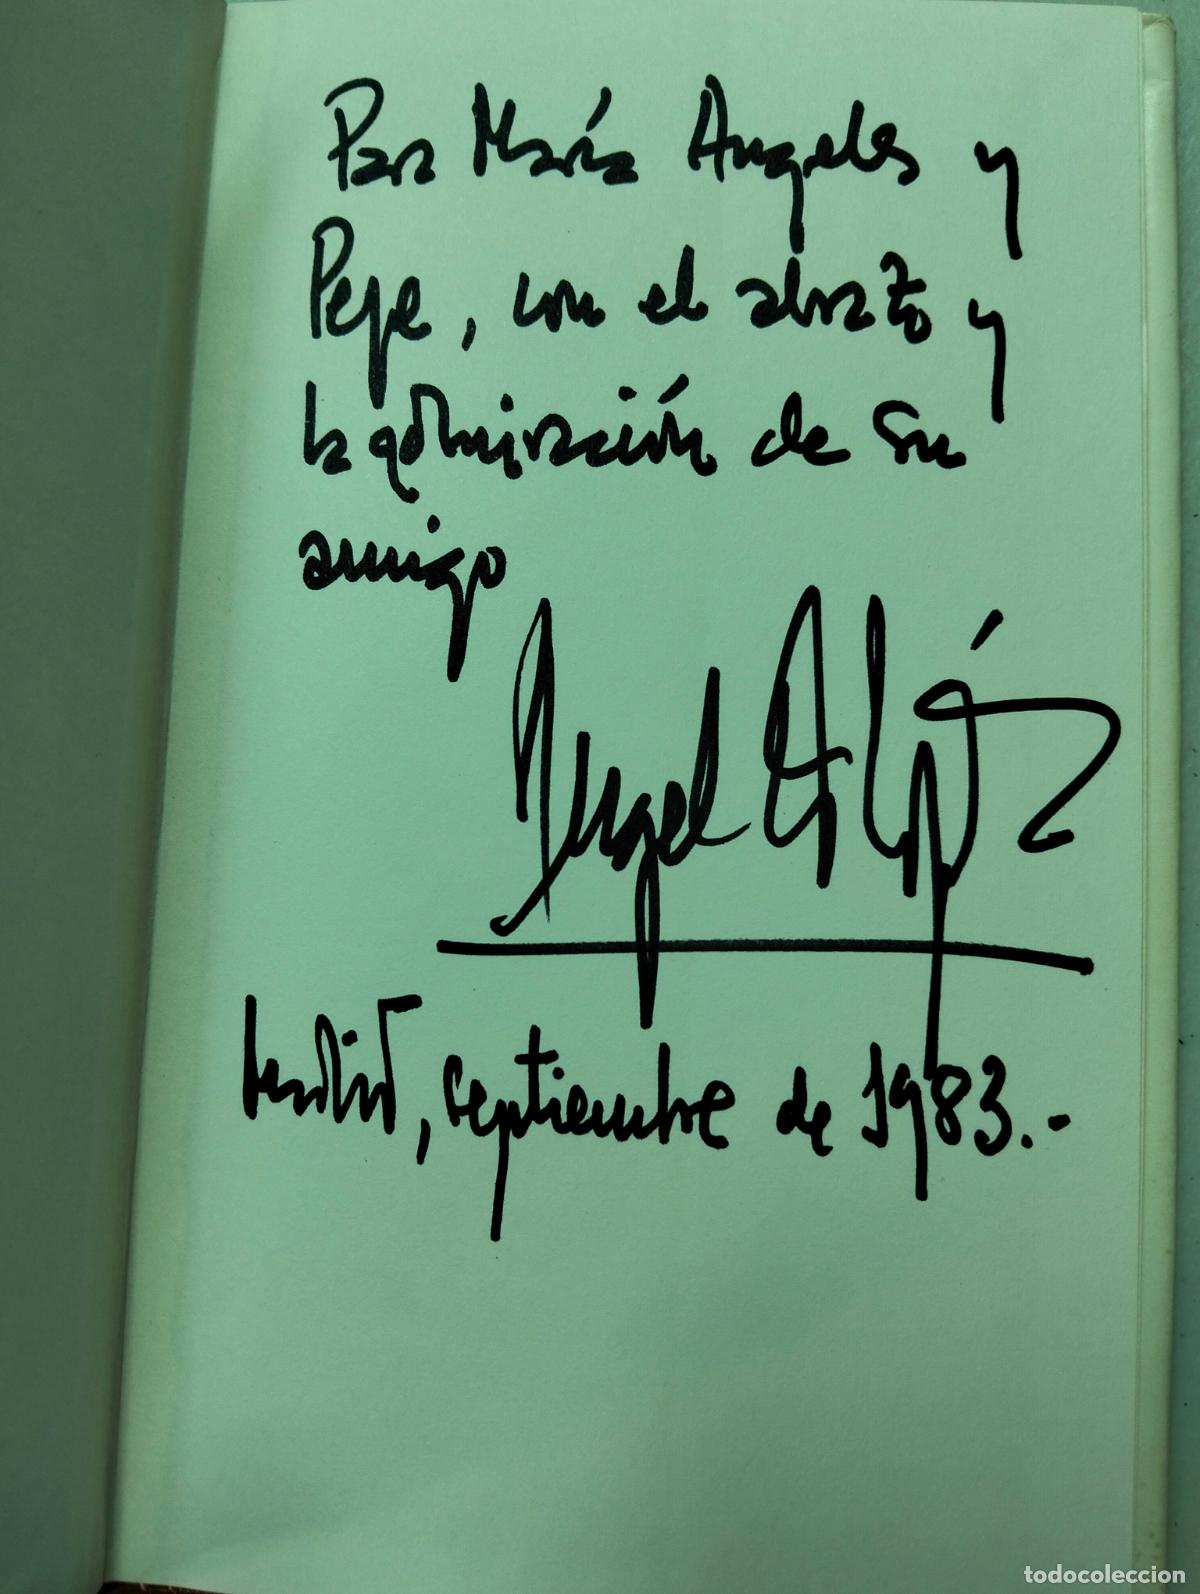 Para María Angeles y
Pepe, con el abrazo y
la admiración de su
amigo
Angel
Madrid, septiembre de 1983.-
todocoleccion